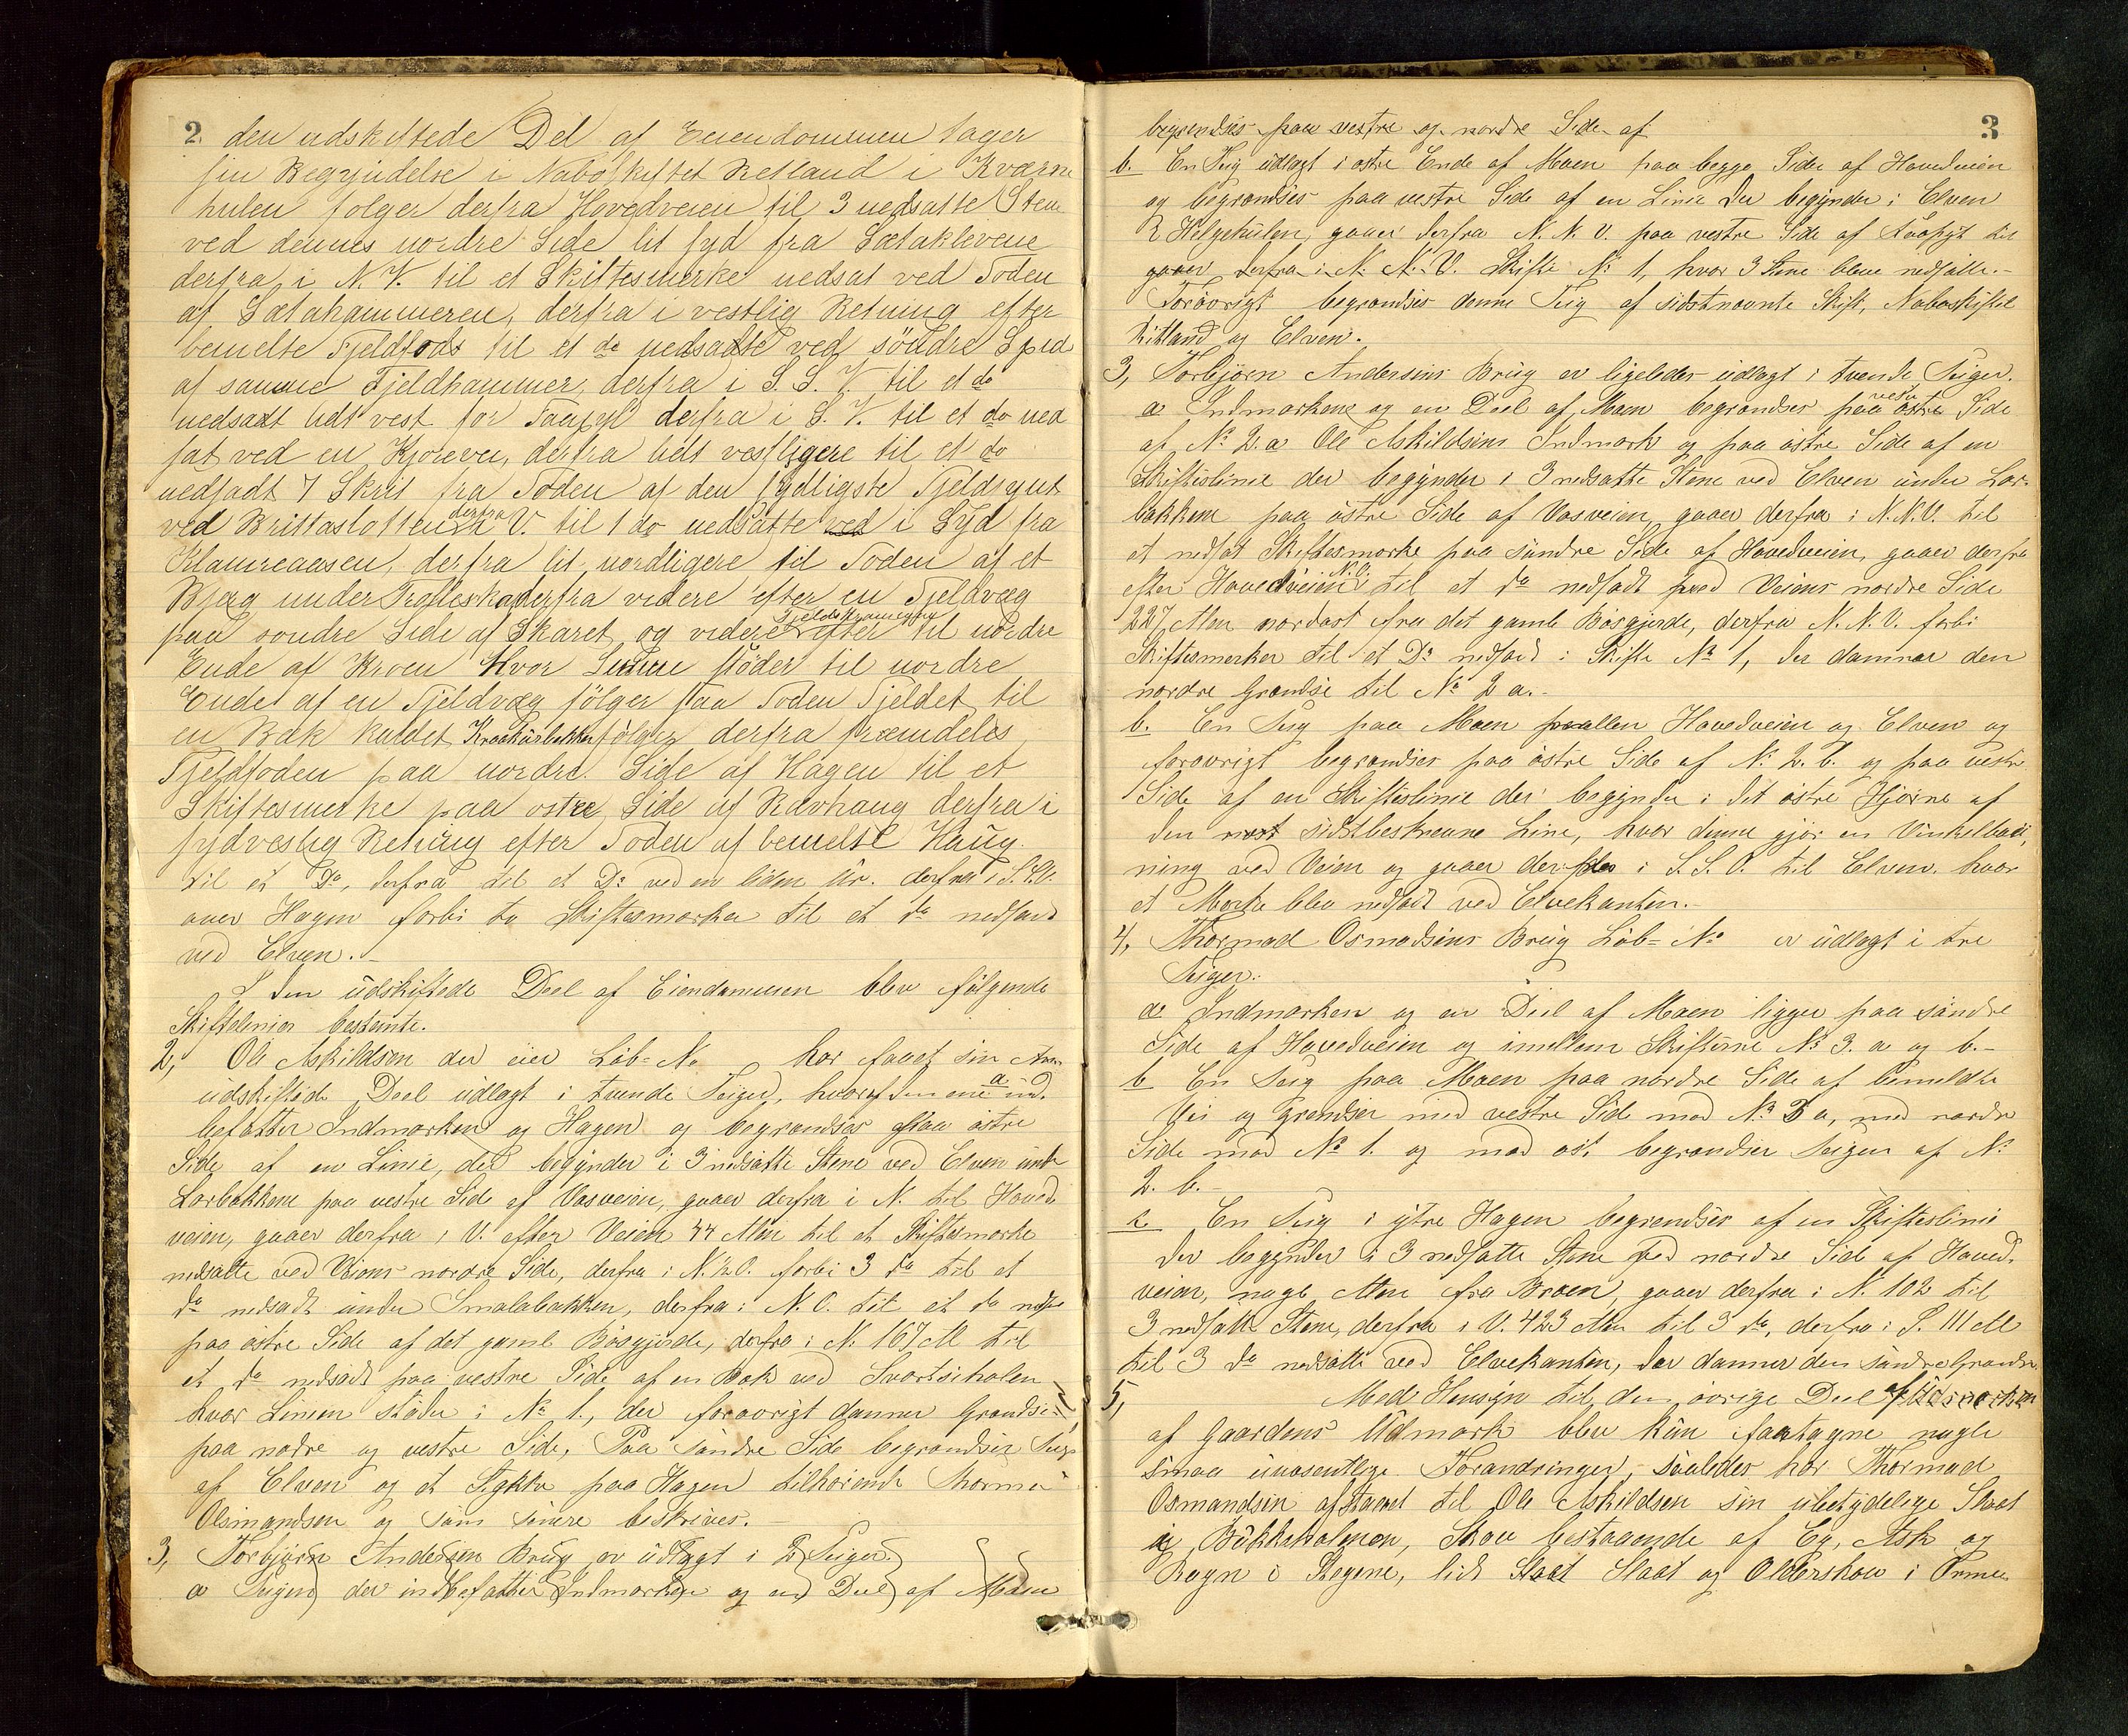 2. den udskiftede Del af Eiendommen tager
sin Begyndelse i Naboskiftet Retland i Kværne
hulen følger derfra Hovedveien til 3 nedsatte Stene
ved dennes nordre Side lit syd fra Sætaklevene
derfra i N. V. til et Skiftesmerke nedsat ved Foden
af Sætahammeren, derfra i vestlig Retning efter
bemelte Fjeldfods til et do nedsadte ved söndre Spid
af samme Fjeldhammer, derfra i S. S. V. til et do
nedsadt lidt vest for Faafyl derfra i S. V. til et do ned
sat ved en Kjoreve, derfra lidt vestligere til et do
nedsadt 7 Skrit fra Foden af den sydligste Fjeldsynt
ved Brittaslotten derfra V. til 1 do nedsatte ved i Syd fra
Klaureaasen, derfra lit nordligere til Foden af et
Bjærg under derfra videre efter en Fjeldvæg
paa søndre Side af Skaret og videre efter til nordre
Ende af Kroen hvor Linien støder til nordre
Ende af en Fjeldvæg følger saa Foden Fjeldet til
en Bæk kaldet følger derfra fremdeles
Fjeldfoden paa nordre Side af Hagen til et
Skiftesmerke paa ostre Side af Ravhaug derfra i
sydvestlig Retning efter Foden af bemelte Haug
til et Do, derfra til et Do ved en liden Ur. derfra i S.S.V.
over Hagen forbi to Skiftesmerker til et do nedsadt
ved Elven.
I den udskiftede Deel af Eiendommen blev følgende
Skiftelinier bestemte.
2, Ole Askildsen der eier Löb-No har faaet sin
udskiftede Deel udlagt i tvende Teiger, hvoraf den ene a ind
befatter Indmarken og Hagen og begrændses paa østre
Side af en Linie, der begynder i 3 nedsatte Stene ved Elven under
Lorbakkene paa vestre Side af Vasveien, gaaer derfra i N. til Hoved
veien, gaaer derfra i V. efter Veien 44 Alen til et Skiftesmerke
nedsatte ved Veiens nordre Side, derfra i N.½O. forbi 3 do til et
do nedsadt under Smalabakken, derfra i N. O. til et do nedsat
paa østre Side af det gamle Bøsgjerde, derfra i N. 167 Al til
et do nedsadt paa vestre Side af en Bæk ved
hvor Linien støder i No 1., der forøvrigt danner Grændsen
paa nordre og vestre Side, Paa søndre Side begrændser Teigen
af Elven og et Stykke paa Hagen tilhørende Thormo
Osmandsen og som senere beskrives.
3, Torbjørn Andersen Brug er udlagt i 2 Teiger.
a Teigen der indbefatter Indmarken og en Deel af Moen

3
begrendses paa vestre og nordre Side af
b. En Teig udlagt i østre Ende af Moen paa begge Sider af Hovedveien
og begrændses paa vestre Side af en Linie der begynder i Elven
i Helgehulen, gaaer derfra N. N. V. paa vestre Side af til
gaaer derfra i N. N. V. Skifte No 1, hvor 3 Stene bleve nedsatte.-
Forøvrigt begrændses denne Teig af sidstnævnte Skift, Naboskiftet
Ritland og Elven.
3, Torbjørn Andersens Brug er ligeledes udlagt i tvende Teiger.
a Indmarkene og en Deel af Moen begrændses paa østre vestre Side
af No 2.a Ole Askildsens Indmark og paa østre Side af en
Skifteslinie der begynder i 3 nedsatte Stene ved Elven under Lor-
bakkene paa østre Side af Vasveien, gaaer derfra i N.N.V. til
et nedsat Skiftesmerke paa søndre Side af Hovedveien, gaaer derfra
efter Hovedveien N.O. til et do nedsadt ved Veiens nordre Side
227 Alen nordøst fra det gamle Bøsgjerde, derfra N. N. V. forbi
Skiftesmerker til et Do nedsadt i Skifte No 1, der danner den
nordre Grændse til No 2 a.-
b. En Teig paa Moen mellem Hovedveien og Elven og
forøvrigt begrændses paa østre Side af No 2. b. og paa vestre
Side af en Skifteslinie der begynder i det østre Hjørne af
den næst sidstbeskrevne Linie, hvor denne gjør en Vinkelbøi,
ning ved Veien og gaaer derfra i S. S. O. til Elven. hvor
et Merke blev nedsadt ved Elvekanten.-
4, Thormod Osmodsens Brug Löb-No er udlagt i tre
Teiger.
a Indmarken og en Deel af Moen ligger paa søndre
Side af Hovedveien og imellem Skifterne No 3. a og b.-
b En Teig paa Moen paa nordre Side af bemeldte
Vei og Grændser med vestre Side mod No 3 a, med nordre
Side mod No 1. og mod øst begrændser Teigen af No
2. b.-
c. En Teig i ytre Hagen begrendses af en Skifteslinie
der begynder i 3 nedsatte Stene ved nordre Side af Hoved-
veien, nogle Alen fra Broen, gaaer derfra i N. 102 til
3 nedsatte Stene, derfra i V. 423 Alen til 3 do, derfra i S. 111 Al
til 3 do nedsatte ved Elvekanten, der danner den søndre Grændse.
5, Med Hensyn til den øvrige Deel af Udmarken
af Gaardens Udmark blev kun foretagne nogle
smaa uvæsentlige Forandringer, saaledes har Thormod
Osmandsen afstaaet til Ole Askildsen sin ubetydelige Slaat
i Bukkeholmen, Skov bestaaende af Eg, Ask og
Rogn i Stegene, lidt Slaat og Olderskov i